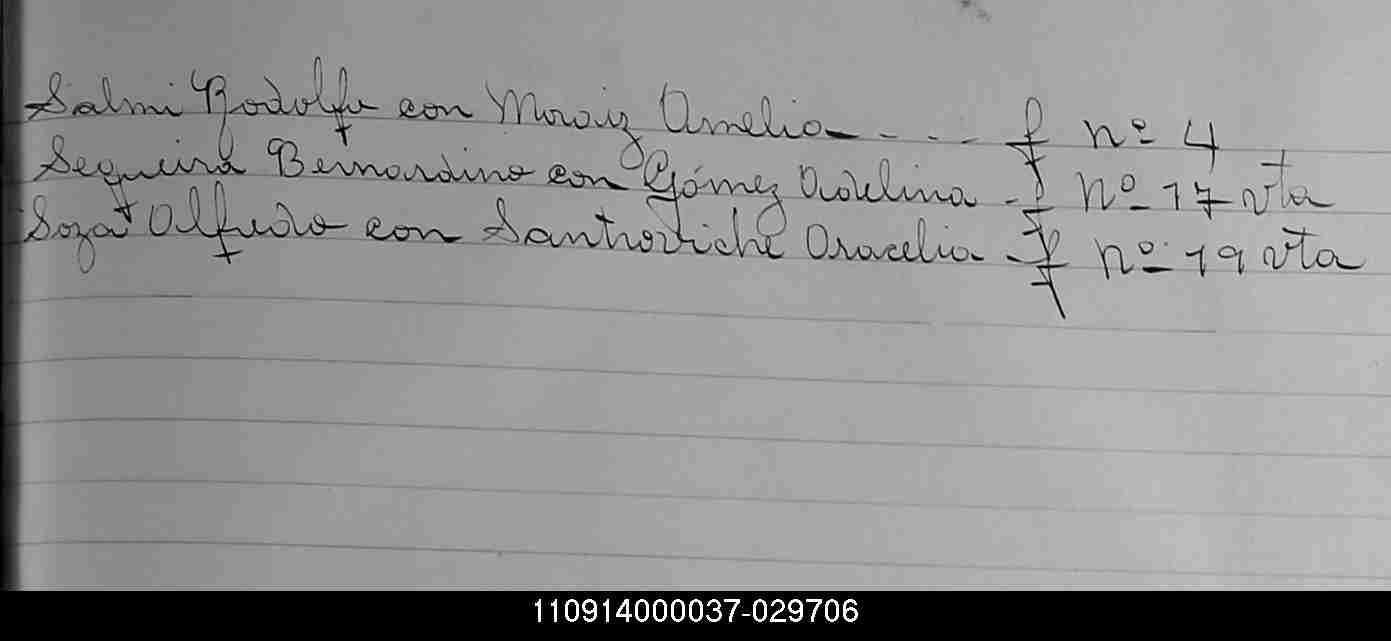 Salmi Rodolfo con Moraiz Amelia - - - - f nº 4
Sequeira Bernardino con Gómez Adelina - f nº 17 vta
Soza Alfredo con Santroviche Oracelia - f nº 19 vta
110914000037-029706